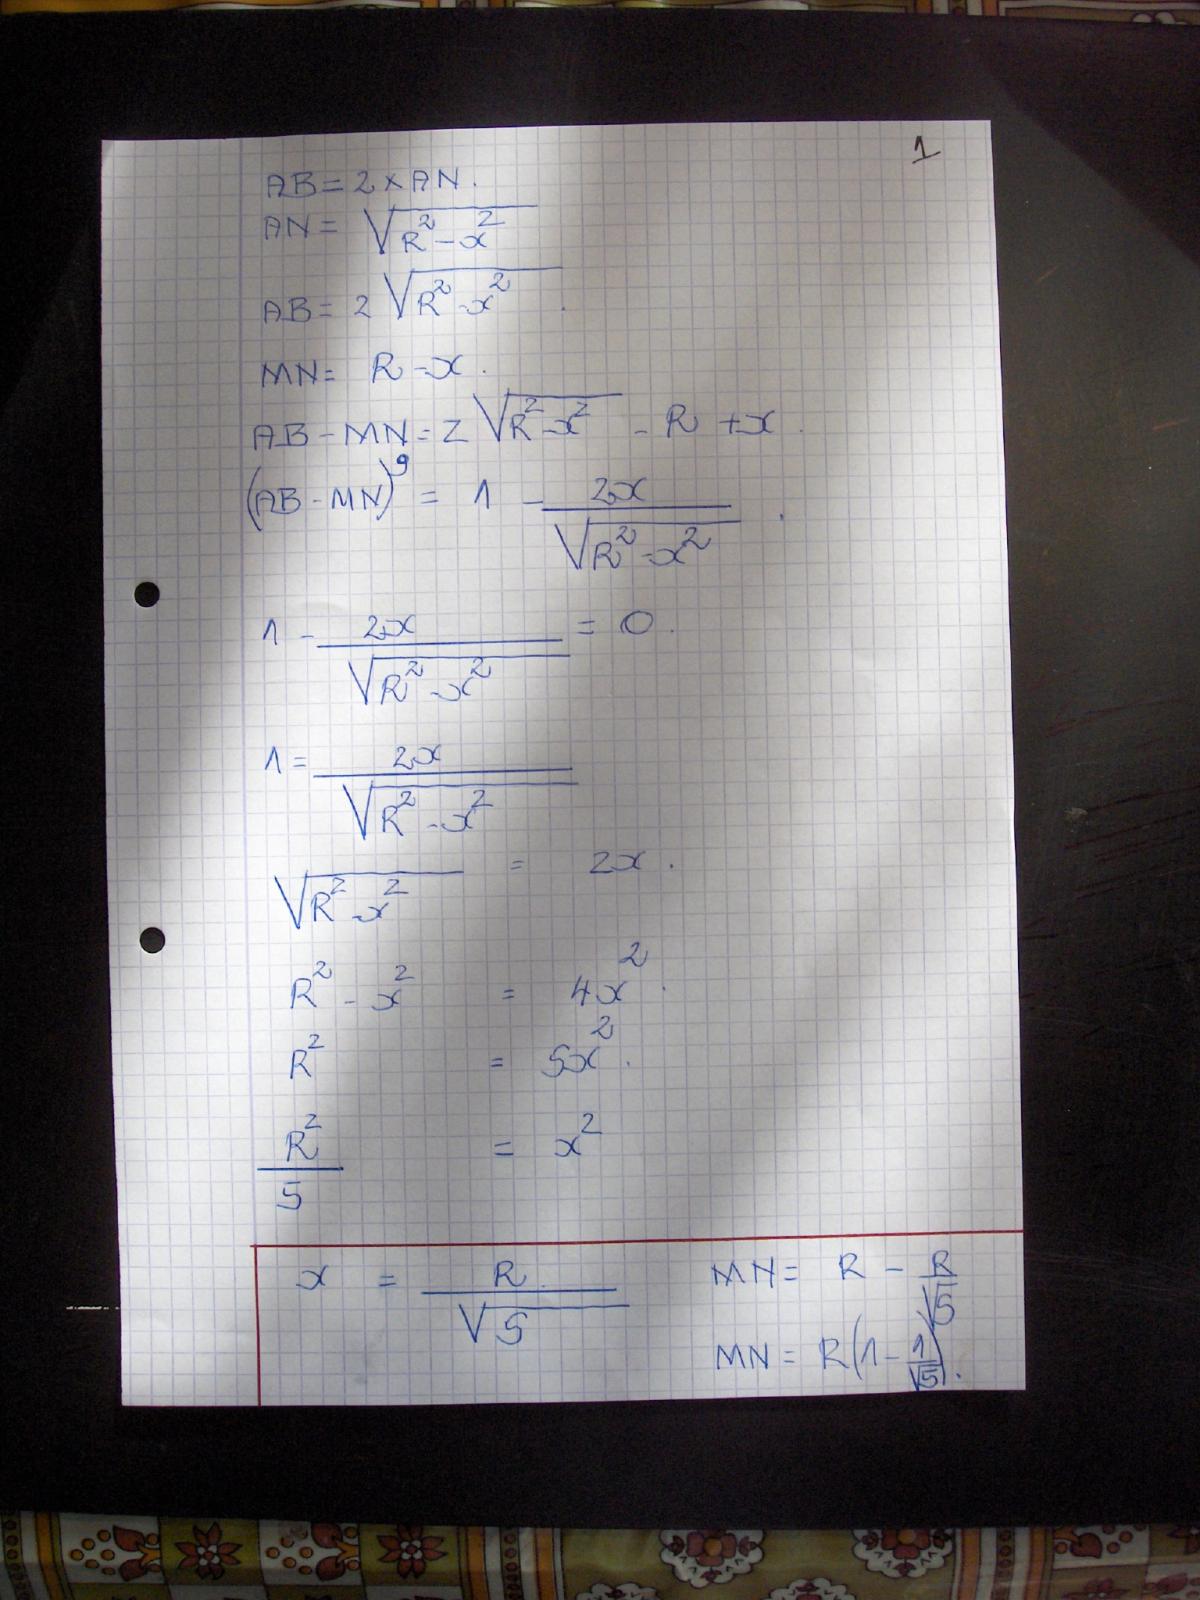 1
AB = 2 × AN.
AN = √(R² - x²)
AB = 2 √(R² - x²) .
MN = R - x .
AB - MN = 2 √(R² - x²) - R + x .
(AB - MN)⁹ = 1 - 2x / √(R² - x²) .
1 - 2x / √(R² - x²) = 0 .
1 = 2x / √(R² - x²)
√(R² - x²) = 2x .
R² - x² = 4x² .
R² = 5x² .
R² / 5 = x²
x = R / √5
MN = R - R / √5
MN = R(1 - 1 / √5) .